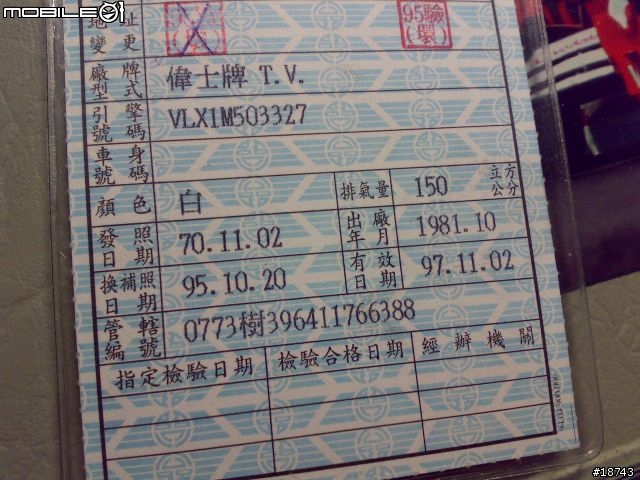 MOBILE01
地址
變更
95驗
(環)
廠牌
型式
偉士牌 T.V.
引擎
號碼
VLX1M503327
車身
號碼
顏色
白
排氣量
150
立方
公分
發照
日期
70.11.02
出廠
年月
1981.10
換補照
日期
95.10.20
有效
日期
97.11.02
管轄
編號
0773樹396411766388
指定檢驗日期
檢驗合格日期
經辦機關
#18743